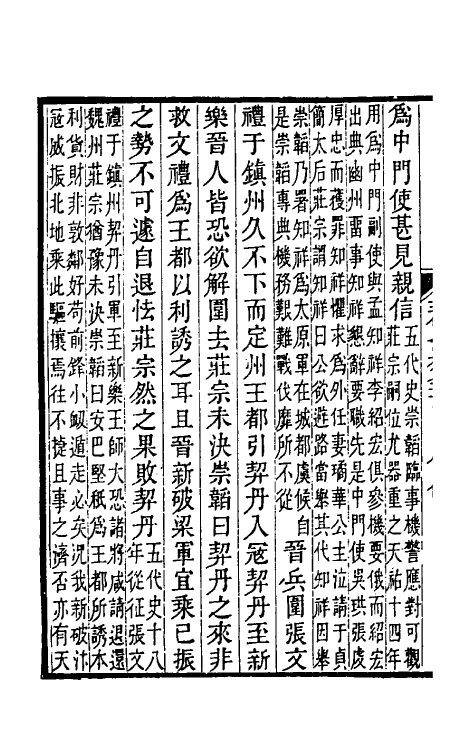 爲中門使甚見親信五代史崇韜臨事機警應對可觀
莊宗嗣位尤器重之天祐十四年
用爲中門副使與孟知祥李紹宏俱參機要俄而紹宏
出典幽州留事知祥懇辭要職先是中門使吳珙張虔
厚忠而獲罪知祥懼求爲外任妻璚華公主泣請于貞
簡太后莊宗謂知祥曰公欲避路當舉其代知祥因舉
崇韜乃署知祥爲太原軍在城都虞候自
是崇韜專典機務艱難戰伐靡所不從
晉兵圍張文
禮于鎮州久不下而定州王都引契丹入冦契丹至新
樂晉人皆恐欲解圍去莊宗未決崇韜曰契丹之來非
救文禮爲王都以利誘之耳且晉新破梁軍宜乘已振
之勢不可遽自退怯莊宗然之果敗契丹五代史十八
年從征張文
禮于鎮州契丹引軍至新樂王師大恐諸將咸請退還
魏州莊宗猶豫未決崇韜曰安巴堅秖爲王都所誘本
利貨財非敦鄰好苟前鋒小衂遁走必矣況我新破汴
冦威振北地乘此驅攘焉往不捷且事之濟否亦有天